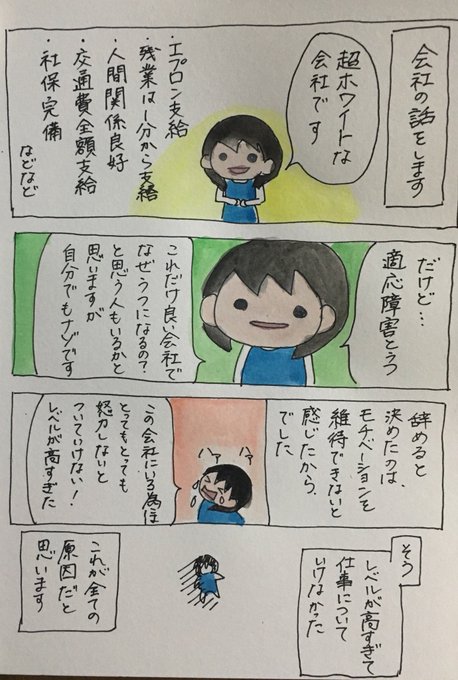 会社の話をします
超ホワイトな
会社です
・エプロン支給
・残業は1分から支給
・人間関係良好
・交通費全額支給
・社保完備
などなど
だけど…
適応障害とうつ
これだけ良い会社で
なぜうつになるの？
と思う人もいるかと
思いますが
自分でもナゾです
辞めると
決めたのは、
モチベーションを
維持できないと
感じたから、
でした
ハァ
ハァ
この会社にいる為には
とってもとっても
努力しないと
ついていけない！
レベルが高すぎた
そう
レベルが高すぎて
仕事について
いけなかった
これが全ての
原因だと
思います